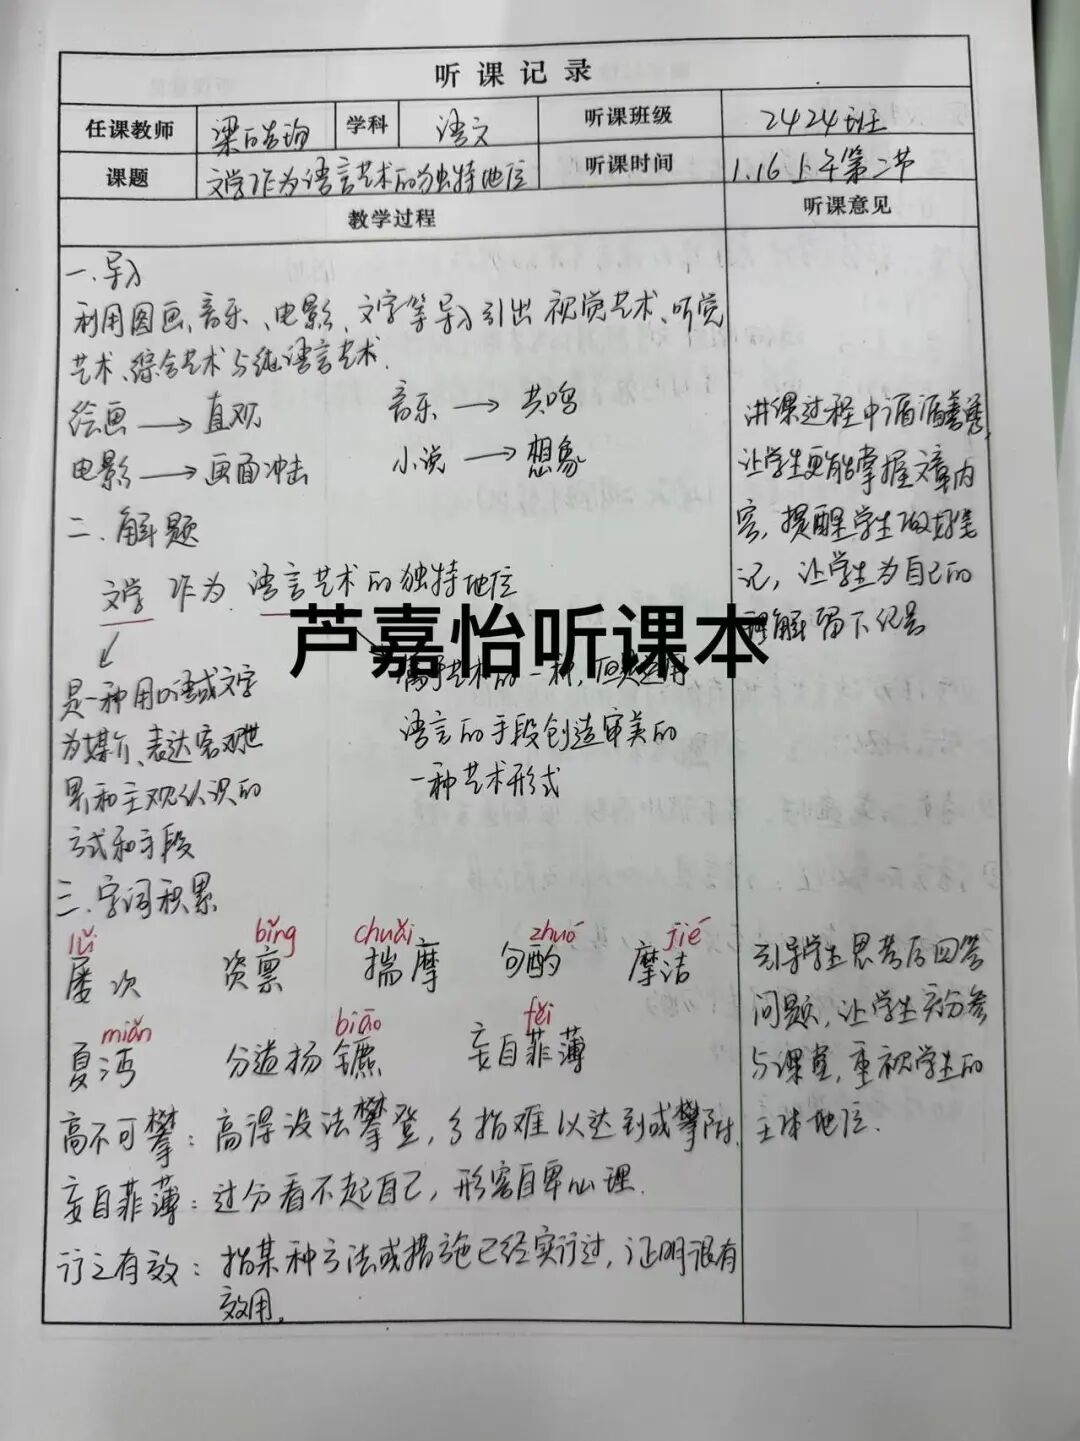 听课记录
任课教师 梁皓珣 学科 语文 听课班级 2424班
课题 文学作为语言艺术的独特地位 听课时间 1.16上午第二节
教学过程 听课意见
一.导入
利用图画、音乐、电影、文字等导入引出视觉艺术、听觉
艺术、综合艺术与纯语言艺术.
绘画→直观 音乐→共鸣
电影→画面冲击 小说→想象
二.解题
文学作为语言艺术的独特地位
是一种用口语或文字
为媒介、表达客观世
界和主观认识的
方式和手段
属于艺术的一种,但是运用
语言的手段创造审美的
一种艺术形式
三.字词积累
lǚ bǐng chuǎi zhuó jié
屡次 资禀 揣摩 句酌 摩诘
miǎn biāo fěi
夏沔 分道扬镳 妄自菲薄
高不可攀:高得没法攀登,多指难以达到或攀附.
妄自菲薄:过分看不起自己,形容自卑心理.
行之有效:指某种方法或措施已经实行过,证明很有
效用。
讲课过程中循循善诱,
让学生更能掌握文章内
容,提醒学生做好笔
记,让学生为自己的
理解留下纪录
引导学生思考后回答
问题,让学生充分参
与课堂,重视学生的
主体地位.
芦嘉怡听课本